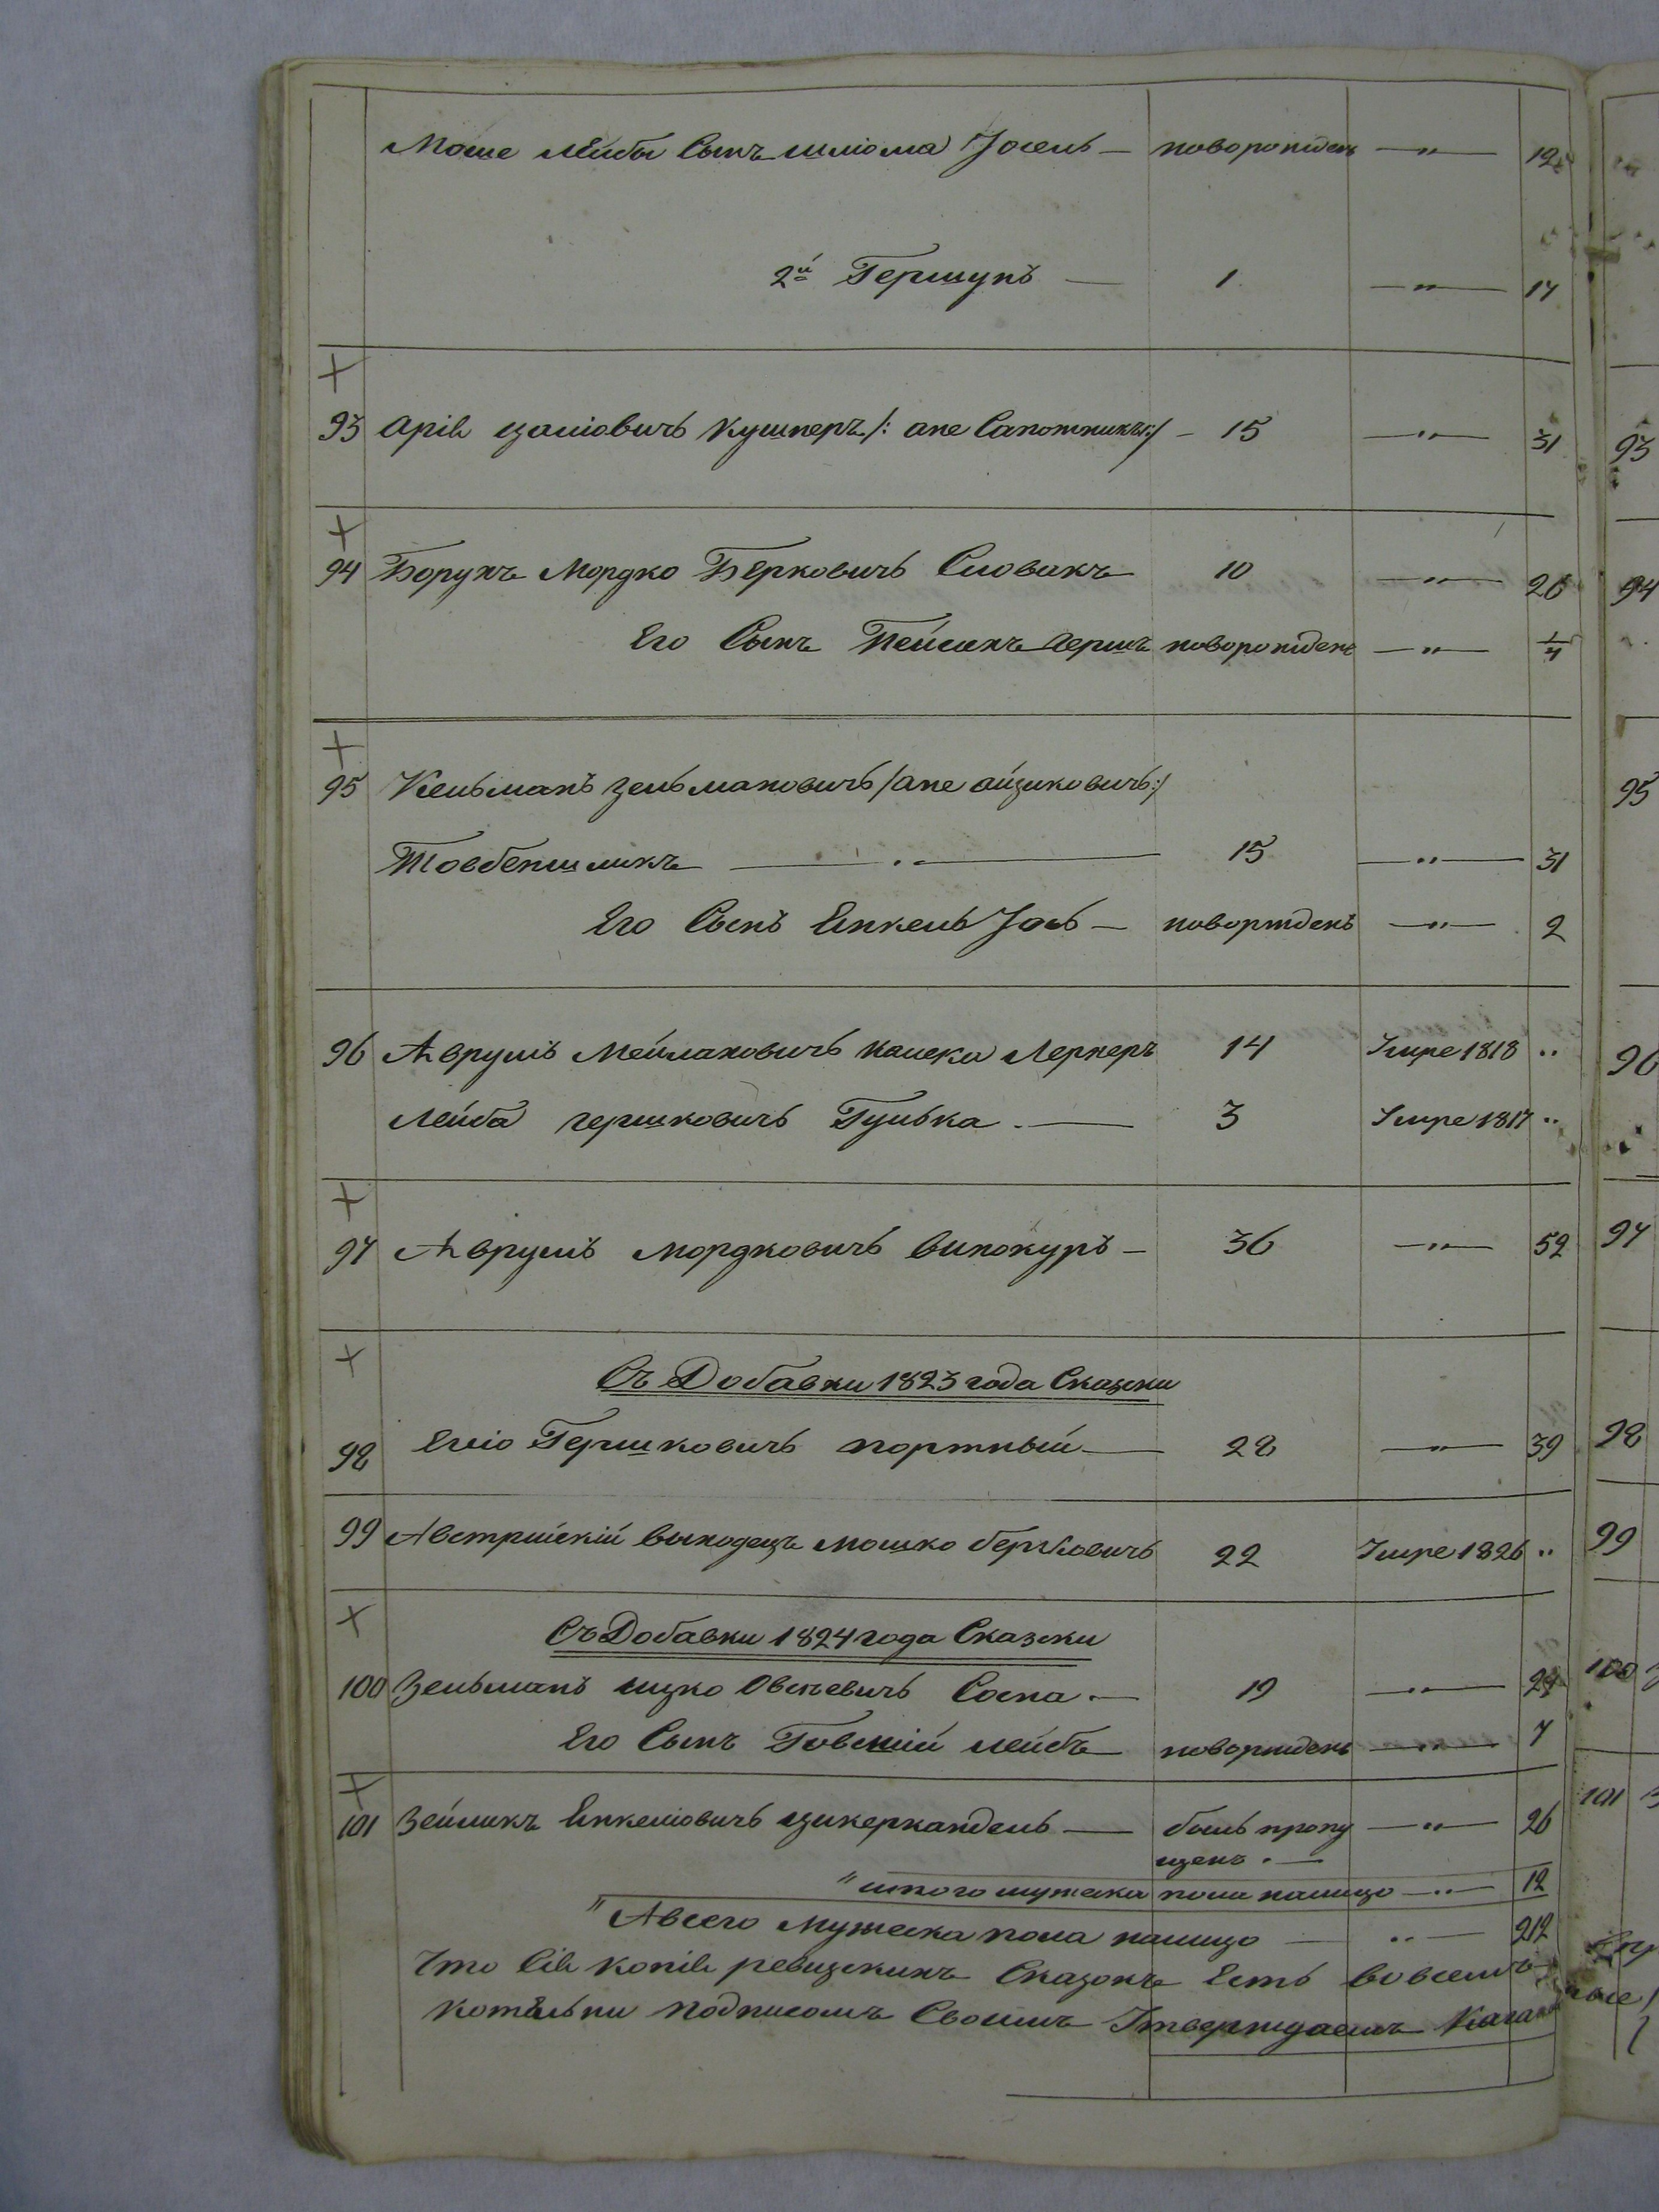 Моше Лейбы Сынъ шлiома Іосель — новорожденъ — " — 12
2й Гершунъ — 1 — " — 17
+
93 Аріѣ цаліовичъ Кушнеръ /: ане Сапожникъ :/ — 15 — " — 31
+
94 Борухъ Мордко Берковичъ Словакъ 10 — " — 26
Его Сынъ Пейсахъ гершъ новорожденъ — " — 1/4
+
95 Кельманъ зельмановичъ / ане айзиковичъ :/
Товбеншликъ — 15 — " — 31
Его Сынъ Янкель Іось — новорждень — " — 2
96 Аврумъ Мейлаховичъ Лернеръ 14 Умре 1818 "
Лейба гершковичъ Гулька . — 3 Умре 1817 "
+
97 Аврумъ мордковичъ винокуръ — 36 — " — 52
+
Съ Добавки 1823 года Сказски
98 Еліо Гершковичъ портный — 28 — " — 39
99 Австрийскій выходецъ мошко берковичъ 22 Умре 1826 "
+
Съ Добавки 1824 года Сказски
100 Зельманъ ицко Овсеевичъ Сосна . — 19 — " —
Его Сынъ лейбъ новорждень — " — 7
+
101 Зейликъ Янкеліовичъ цикеркандель — былъ пропу — " — 26
щенъ . —
" итого мужеска пола налицо — " — 12
" А всего Мужеска пола налицо — " — 212
Что Сіѣ копіѣ ревизскихъ Сказокъ Есть во всемъ
подписомъ Своимъ Утверждаемъ
93
94
95
96
97
98
99
100
101